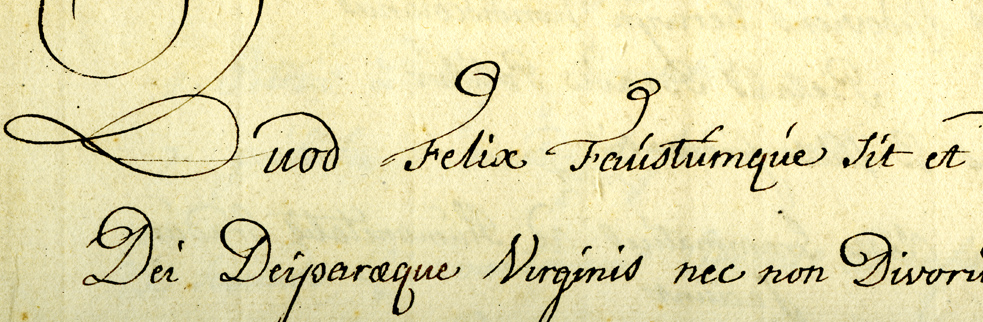 Quod Felix Faústúmqúe Sit et
Dei Deiparæque Virginis nec non